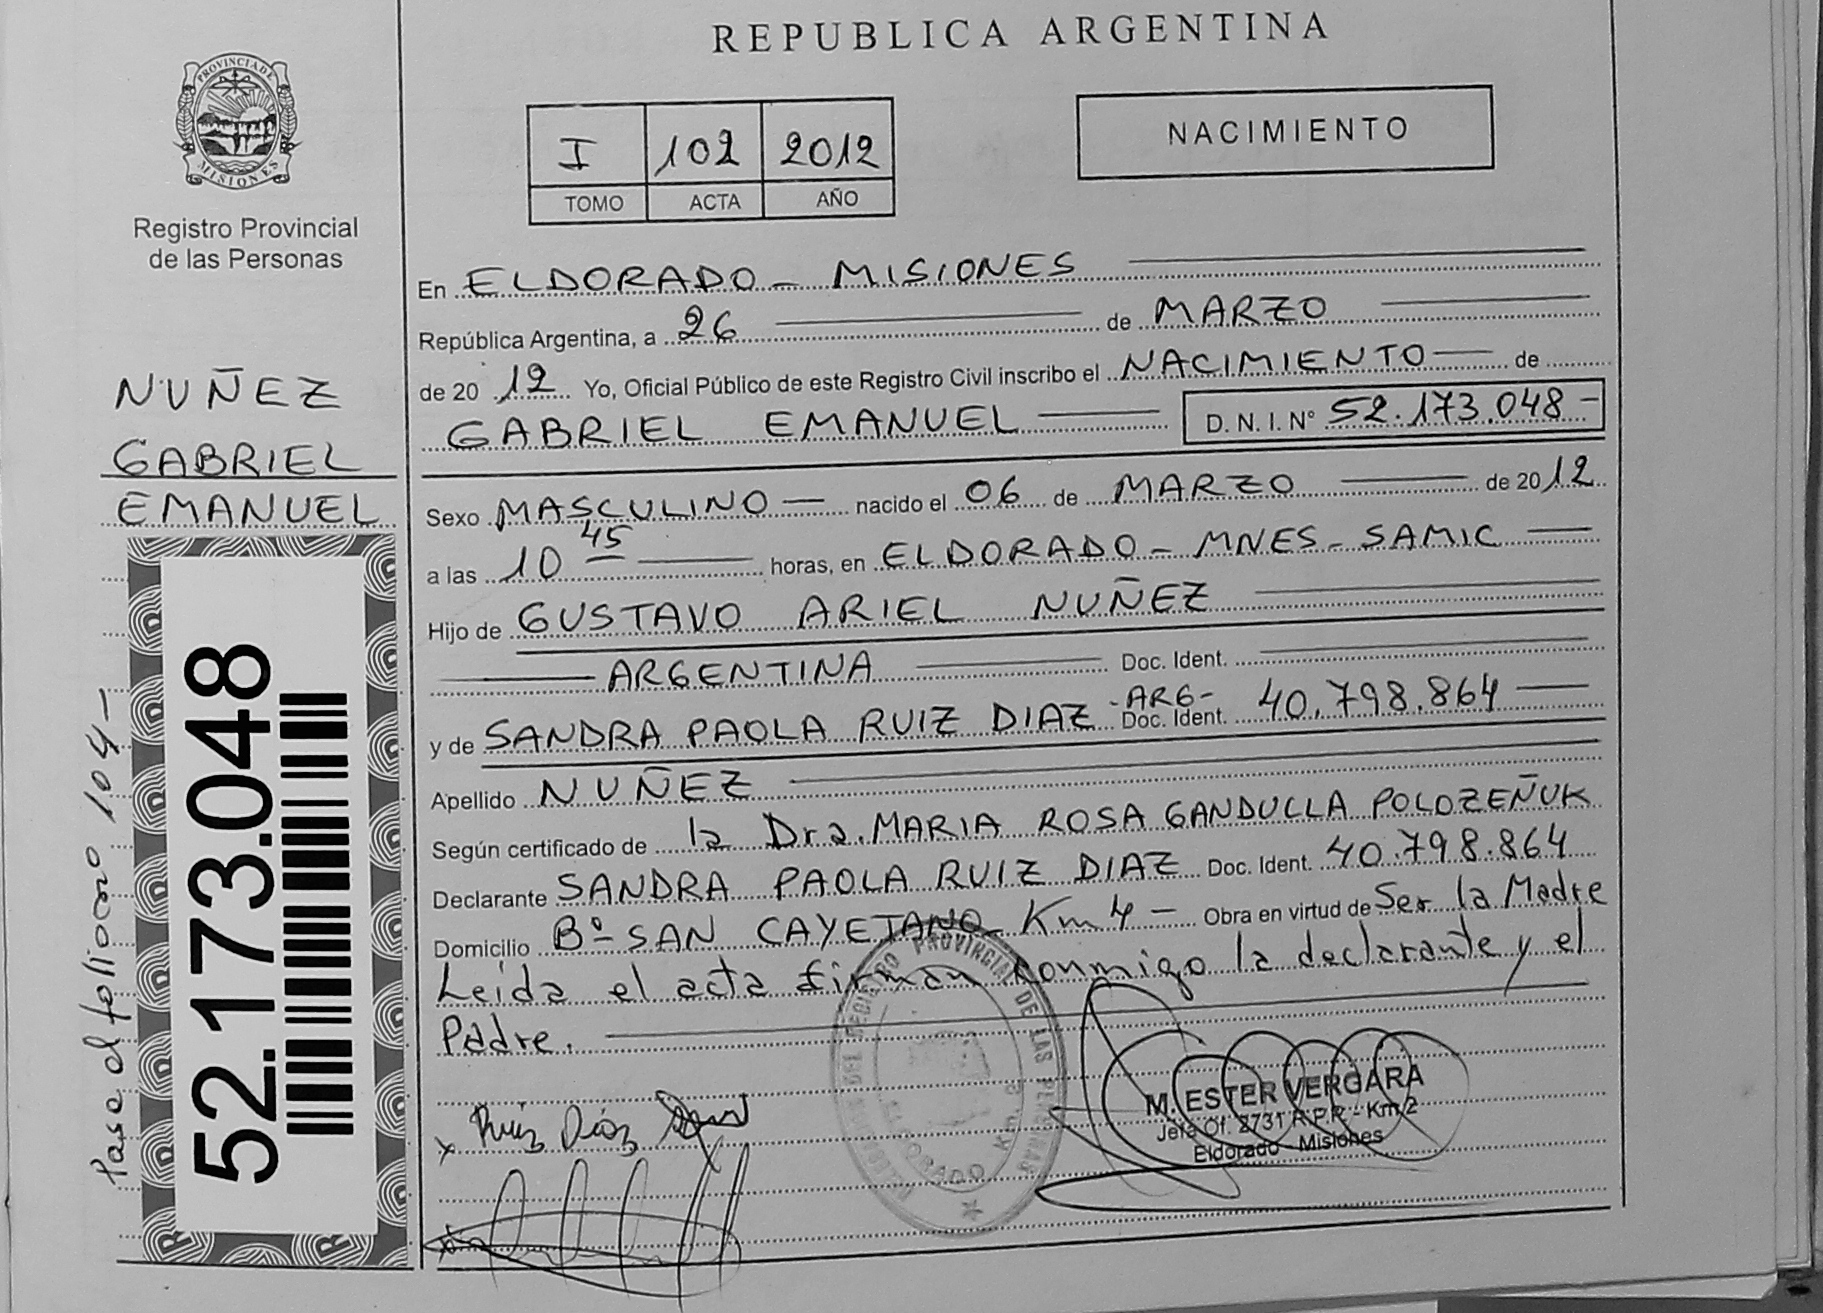 REPUBLICA ARGENTINA
PROVINCIA DE
MISIONES
Registro Provincial
de las Personas
I 102 2012
TOMO ACTA AÑO
NACIMIENTO
NUÑEZ
GABRIEL
EMANUEL
52.173.048
Paso al folio 104-
En ELDORADO - MISIONES
República Argentina, a 26 de MARZO
de 2012 Yo, Oficial Público de este Registro Civil inscribo el NACIMIENTO de
GABRIEL EMANUEL D. N. I. Nº 52.173.048-
Sexo MASCULINO nacido el 06 de MARZO de 2012
a las 10 45 horas, en ELDORADO - MNES - SAMIC
Hijo de GUSTAVO ARIEL NUÑEZ
ARGENTINA Doc. Ident.
y de SANDRA PAOLA RUIZ DIAZ -ARG- Doc. Ident. 40.798.864
Apellido NUÑEZ
Según certificado de la Dra. MARIA ROSA GANDULLA POLOZEÑUK
Declarante SANDRA PAOLA RUIZ DIAZ Doc. Ident. 40.798.864
Domicilio Bº SAN CAYETANO Km 4 - Obra en virtud de Ser la Madre
Leída el acta firman conmigo la declarante y el
Padre.
PROVINCIAL DE LAS PERSONAS
ELDORADO
x Ruiz Diaz
M. ESTER VERGARA
Jefa Of. 2731 R.P.P. - Km 2
Eldorado - Misiones